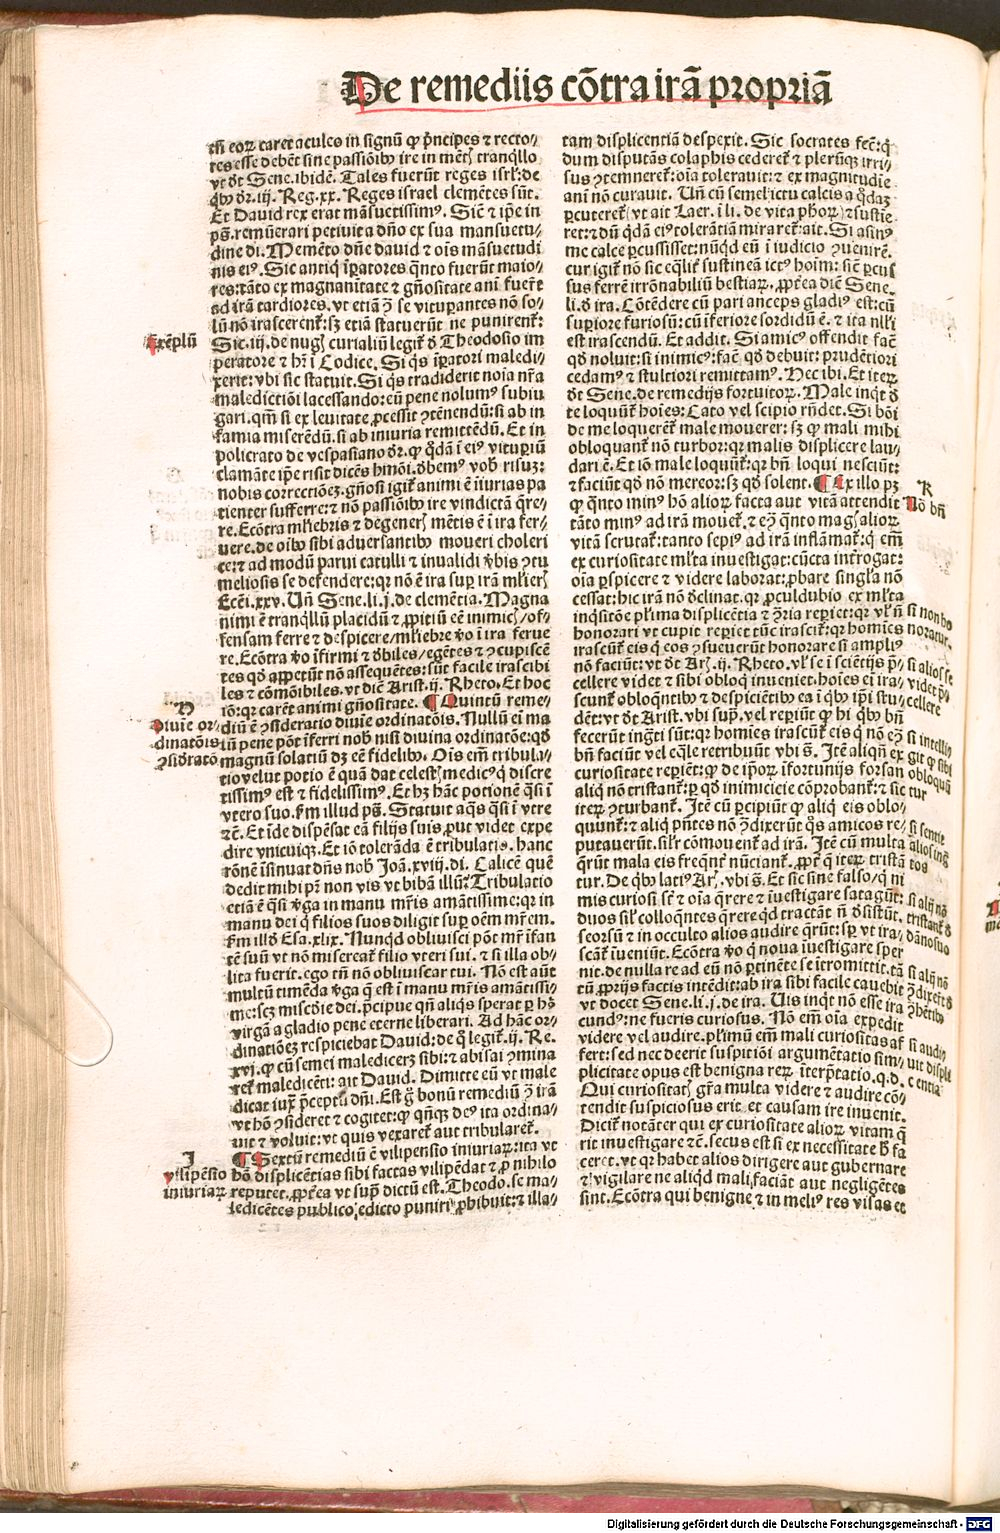 De remediis cōtra irā propriā
tn̄ eoꝝ caret aculeo in signū ꝙ pͥncipes ⁊ recto⸗
res esse debēt sine passiōibꝰ ire in mēt tranqͥllo
vt dt Sene. ibidē. Tales fuerūt reges isrl̓: de
qͥbꝰ dr̄. iij. Reg. xx. Reges israel clemētes sūt.
Et David rex erat māsuetissimꝰ. Sic̄ ⁊ ip̄e in
ps̄. remūerari petivit a dn̄o ex sua mansuetu⸗
dine di. Memēto dn̄e david ⁊ oīs māsuetudi
nis eiꝰ. Sic antiqͥ īꝑatores qͣnto fuerūt maio⸗
res: tāto ex magnanitate ⁊ gn̄ositate anī fuerт̄
ad irā tardiores. vt etiā ↄ̄ se vituꝑantes nō so⸗
lū nō irascerenť: sꝫ etiā statuerūt ne punirenť:
Exēplū
Sic. iij. de nug̓ curialiū legiť d̓ Theodosio im
peratore ⁊ hr̄ ī Codice. Si qͥs īꝑatori maledi⸗
xerit: vbi sic statuit. Si qͥs tradiderit noīa nr̄a
maledictiōi lacessando: eū pene nolumꝰ subiu
gari. qm̄ si ex levitate ꝓcessit ↄ̄tēnendū: si ab in
famia miserēdū. si ab iniuria remittēdū. Et in
policrato de vespasiano dr̄. ꝙ qͥdā ī eiꝰ vituꝑiū
clamāte ip̄e risit dicēs hmōi. d̓bemꝰ vob̓ risuꝫ:
nobis correctiōeꝫ. gn̄osi igiť animi ē īiurias pa
tienter sufferre: ⁊ nō passiōibꝰ ire vindictā qͥre⸗
re. Ecōtra ml̓iebris ⁊ degener̓ mētis ē ī ira fer⸗
uere. de oībꝰ sibi adversantibꝰ moveri choleri
ce: ⁊ ad modū parvi catulli ⁊ invalidi v̓bis ↄ̄tu
meliosis se defendere: qꝛ nō ē ira suꝑ irā ml̓ier̓
Ecc̄i. xxv. Un̄ Sene. li. j. de clemētia. Magna
nimi ē tranqͥllū placidū ⁊ ꝓpitiū eē inimic̓/of⸗
fensam ferre ⁊ despicere/ml̓iebre v̓o ī ira ferue
re. Ecōtra v̓o īfirmi ⁊ d̓biles/egētes ⁊ ↄ̄cupiscē
tes qd̓ appetūt nō assequētes: sūt facile irascibi
les ⁊ cōmōibiles. vt diē Arist. ij. Rheto. Et hoc
iō: qꝛ carēt animi gn̄ositate. ¶ Quintū reme⸗
Divīe or⸗
dinatōis
ↄ̄sid̓ratō
diū ē ↄ̄sideratio divīe ordinatōis. Nullū eī ma
lū pene pōt īferri nob̓ nisi divina ordinatōe: qd̓
magnū solatiū dꝫ eē fidelibꝰ. Oīs em̄ tribula⸗
tio velut potio ē quā dat celest̓ medicꝰ qͥ discre
tissimꝰ est ⁊ fidelissimꝰ. Et hꝫ hāc potionē qͣsi ī
vtero suo. ẜm illud ps̄. Statuit aqͣs qͣsi ī vtre
⁊c̄. Et īde dispēsat eā filijs suis ꝓut videt expe
dire vnicuiqꝫ. Et iō tolerāda ē tribulatio. hanc
rōnē īsinuat dn̄s nob̓ Joā. xviij. di. Calicē quē
dedit mihi pr̄ non vis vt bibā illū: Tribulatio
etiā ē qͣsi v̓ga in manu mr̄is amātissime: qꝛ in
manu dei qͥ filios suos diligit suꝑ oēm mr̄em.
ẜm illd̓ Esa. xlix. Nunqͥd oblivisci pōt mr̄ īfan
tē suū vt nō misereať filio vteri sui. ⁊ si illa ob⸗
lita fuerit. ego tn̄ nō obliviscar tui. Nō est aūt
multū timēda v̓ga qͣ est ī manu mr̄is amātissi⸗
me: scꝫ mīscd̓ie dei. pͥcipue qn̄ aliqͥs sperat ꝑ hͦs
virgā a gladio pene eterne liberari. Ad hāc or⸗
dinatiōeꝫ respiciebat David: de qͦ legiť. ij. Re.
xvj. ꝙ cū semei malediceret sibi: ⁊ abisai ↄ̄mina
reť maledicēti: ait David. Dimitte eū vt male
dicat iuxͣ pͥceptū dn̄i. Est gͦ bonū remediū ↄ̄ irā
vt hō ↄ̄sideret ⁊ cogitet: ꝙ qn̄qꝫ deꝰ ita ordina⸗
uit ⁊ voluit: vt quis vexareť aut tribulareť.
J
vilipēsio
iniuriaꝝ
¶ Sextū remediū ē vilipensio iniuriaꝝ: ita vt
hō displicētias sibi factas vilipēdat ⁊ ꝓ nihilo
reputet. ꝓpterea vt supͣ dictū est. Theodo. se ma⸗
ledicētes publico edicto puniri ꝓhibuit: ⁊ illa⸗
tam displicentiā despexit. Sic socrates fec̄: qͥ
dum disputās colaphis cedereť ⁊ plerūqꝫ irri⸗
sus ↄ̄temnereť: oīa toleravit: ⁊ ex magnitudīe
anī nō curavit. Un̄ cū semel ictu calcis a qͦdaꝫ
ꝑcutereť (vt ait Laer. ī li. de vita ph̓oꝝ) ⁊ sustīe
ret: ⁊ dū qͥdā eiꝰ tolerātiā mirareť: ait. Si asinꝰ
me calce ꝑcussisset: nūqͥd eū ī iudicio ↄ̄venirē.
cur igiť nō sic eqͣliť sustineā ictꝰ hoīm: sic̄ ꝑcus
sus ferrē irrōnabiliū bestiaꝝ. ꝓpterea diē Sene.
li. d̓ ira. Cōtēdere cū pari anceps gladiꝰ est: cū
suꝑiore furiosū: cū īferiore sordidū ē. ⁊ ita nll̓i
est irascendū. Et addit. Si amicꝰ offendit fac̄
qd̓ noluit: si inimicꝰ: fac̄ qd̓ debuit: prudētiori
cedamꝰ ⁊ stultiori remittamꝰ. Hec ibi. Et iteꝝ
dt Sene. de remedijs fortuitoꝝ. Male inqͥt d̓
te loquūť hoīes: Cato vel scipio rn̄det. Si bōi
de me loquerēť male moverer: sꝫ ꝙ mali mihi
obloquant̓ nō turbor: qꝛ malis displicere lau⸗
dari ē. Et iō male loquūť: qꝛ bn̄ loqui nesciūt:
⁊ faciūt qd̓ nō mereor: sꝫ qd̓ solent. ¶ Ex illo pꝫ
K
Nō bn̄
ꝙ qͣnto minꝰ hō alioꝝ facta aut vitā attendit
tāto minꝰ ad irā moveť. ⁊ eͦ ꝙ qͣnto mag̓ alioꝝ
vitā scrutať: tanto sepiꝰ ad irā inflāmať: qꝛ em̄
ex curiositate ml̓ta investigat: cūcta intr̄ogat:
oīa ꝑspicere ⁊ videre laborat: ꝓbare singl̓a nō
cessat: hic irā nō d̓clinat. qꝛ ꝓculdubio ex ml̓ta
inqͥsitōe pl̓ima displicētia ⁊ ↄ̄ria reꝑiet: qꝛ vl̓ n̄
si non ho
noratur.
honorari vt cupit reꝑiet tūc irascit̓: qꝛ homīes
irascūť eis qͥ eos ↄ̄sueverūt honorare si ampliꝰ
nō faciūt: vt dt Ar̓. ij. Rheto. vl̓ se ī sciētijs p̄⸗
si alios se
videt p̄
cellere
cellere videt ⁊ sibi obloqͥ inveniet. hoīes eī ira⸗
scunť obloqn̄tibꝰ ⁊ despiciētibꝰ ea ī qͥbꝰ ip̄i stu⸗
dēt: vt dt Arist. vbi supͣ. vel reꝑiūt ꝙ hi qͥbꝰ bn̄
fecerūt ingͣti sūt: qꝛ homīes irascūť eis qͥ nō eͦ
si intelli
git ꝙ sibi
obloquū
tur
bn̄ faciūt vel eqͣle retribuūt vbi s̄. Itē aliqn̄ ex
curiositate reꝑiēt: ꝙ de ip̄oꝝ īfortunijs forsan
aliqͥ nō tristanť: ꝑ qd̓ inimicicie cōprobanť: ⁊ sic
iteꝝ ↄ̄turbanť. Itē cū ꝑcipiūt ꝙ aliqͥ eis oblo⸗
quunť: ⁊ aliqͥ pn̄tes nō ↄ̄dixerūt qͦs amicos re⸗
si sentit
alios ing̓
tos
putaverūt. sil̓r cōmovenť ad irā. Itē cū multa
qͥrūt mala eis freqn̄t̓ nūcianť. ꝓpt̓ qd̓ iteꝝ tristā
tur. De qͥbꝰ latiꝰ Ar̓. vbi s̄. Et sic sine falso/qͥ ni
mis curiosi sūt ⁊ oīa qͥrere ⁊ īvestigare satagūt:
si aliqͥ nō
tristanť d̓
dāno suo
duos sil̓ colloqn̄tes qͥrere qd̓ tractāt n̄ d̓sistūt.
seorsū ⁊ in occulto alios audire qͥrūt: sꝑ vt ira⸗
scāť īveniūt. Ecōtra v̓o qͥ noua īvestigare sper
nit. de nulla re ad eū nō ꝑtinēte se ītromittit. tā
si aliqͥ nō
ↄ̄dixerīt d̓
ↄ̄hētibꝰ
tū ꝓprijs factis intēdit: ab ira sibi facile cavebit
vt docet Sene. li. j. de ira. Uis inqͥt nō esse ira
cundꝰ: ne fueris curiosus. Nō em̄ oīa expedit
videre vel audire. pl̓imū em̄ mali curiositas af
si audit
vit displi
centia
fert: sed nec deerit suspitiōi argumētatio sim⸗
plicitate opus est benigna rerꝝ īterp̄tatio. q. d.
Qui curiositat̓ gr̄a multa videre ⁊ audire cō⸗
tendit suspiciosus erit et causam ire invenit.
Diciť notāter qui ex curiositate alioꝝ vitam qͥ
rit investigare ⁊c̄. secus est si ex necessitate h̓ fa
ceret. vt qꝛ habet alios dirigere aut gubernare
⁊ vigilare ne aliqͥd mali faciāt aut negligētes
sint. Ecōtra qui benigne ⁊ in meliꝰ res visas et
Digitalisierung gefördert durch die Deutsche Forschungsgemeinschaft - DFG